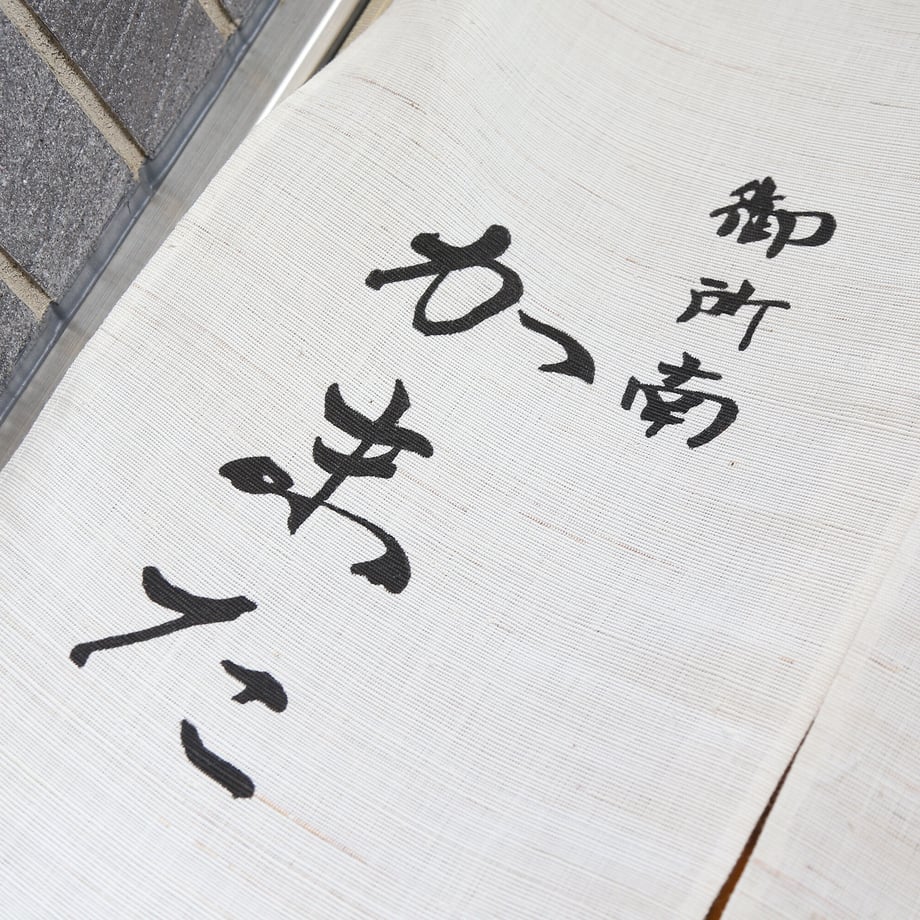 御所南
かまた